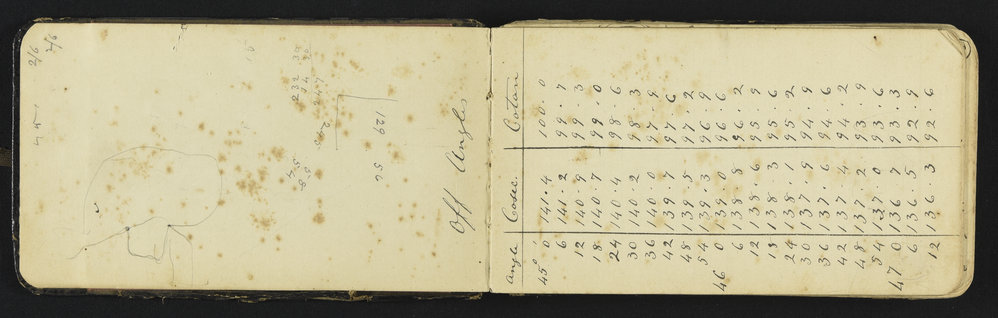 2/6
2/6
232
247
129 56
Off Angles
Angle Cosec. Cotan.
45° 0' 141.4 100.0
6 141.2 99.7
12 140.9 99.3
18 140.7 99.0
24 140.4 98.6
30 140.2 98.3
36 140.0 97.9
42 139.7 97.6
48 139.5 97.2
54 139.3 96.9
46 0 139.0 96.6
6 138.8 96.2
12 138.6 95.9
18 138.3 95.6
24 138.1 95.2
30 137.9 94.9
36 137.6 94.6
42 137.4 94.2
48 137.2 93.9
54 137.0 93.6
47 0 136.7 93.3
6 136.5 92.9
12 136.3 92.6